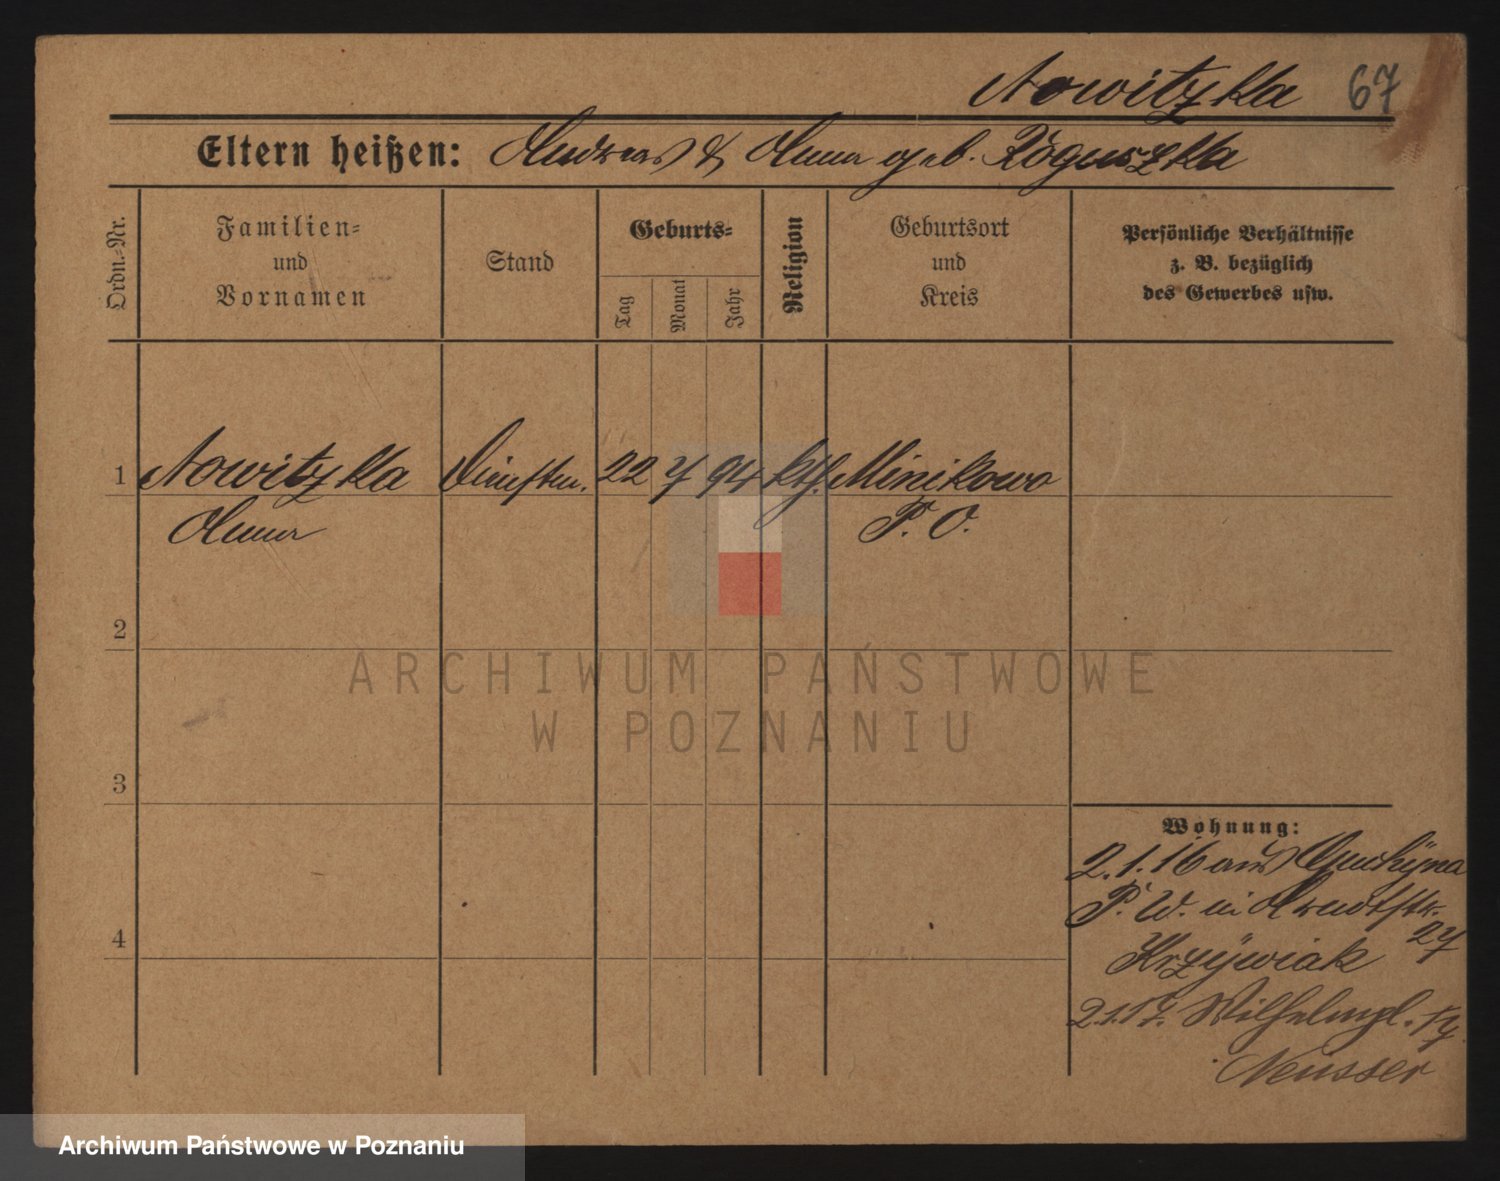 Nowitzka 67
Eltern heißen: Andreas & Anna geb. Roguszka
Ordn.-Nr.
Familien-
und
Vornamen
Stand
Geburts-
Tag
Monat
Jahr
Religion
Geburtsort
und
Kreis
Persönliche Verhältnisse
z. B. bezüglich
des Gewerbes usw.
1 Nowitzka Dienstm. 22 7 94 kth. Minikowo
Anna P. O.
2
3
4
Wohnung:
2.1.16 aus
P. W. in Arndtstr.
27
Krzÿwiak
2.1.17. Wilhelmpl. 17
Neusser
ARCHIWUM PAŃSTWOWE
W POZNANIU
Archiwum Państwowe w Poznaniu